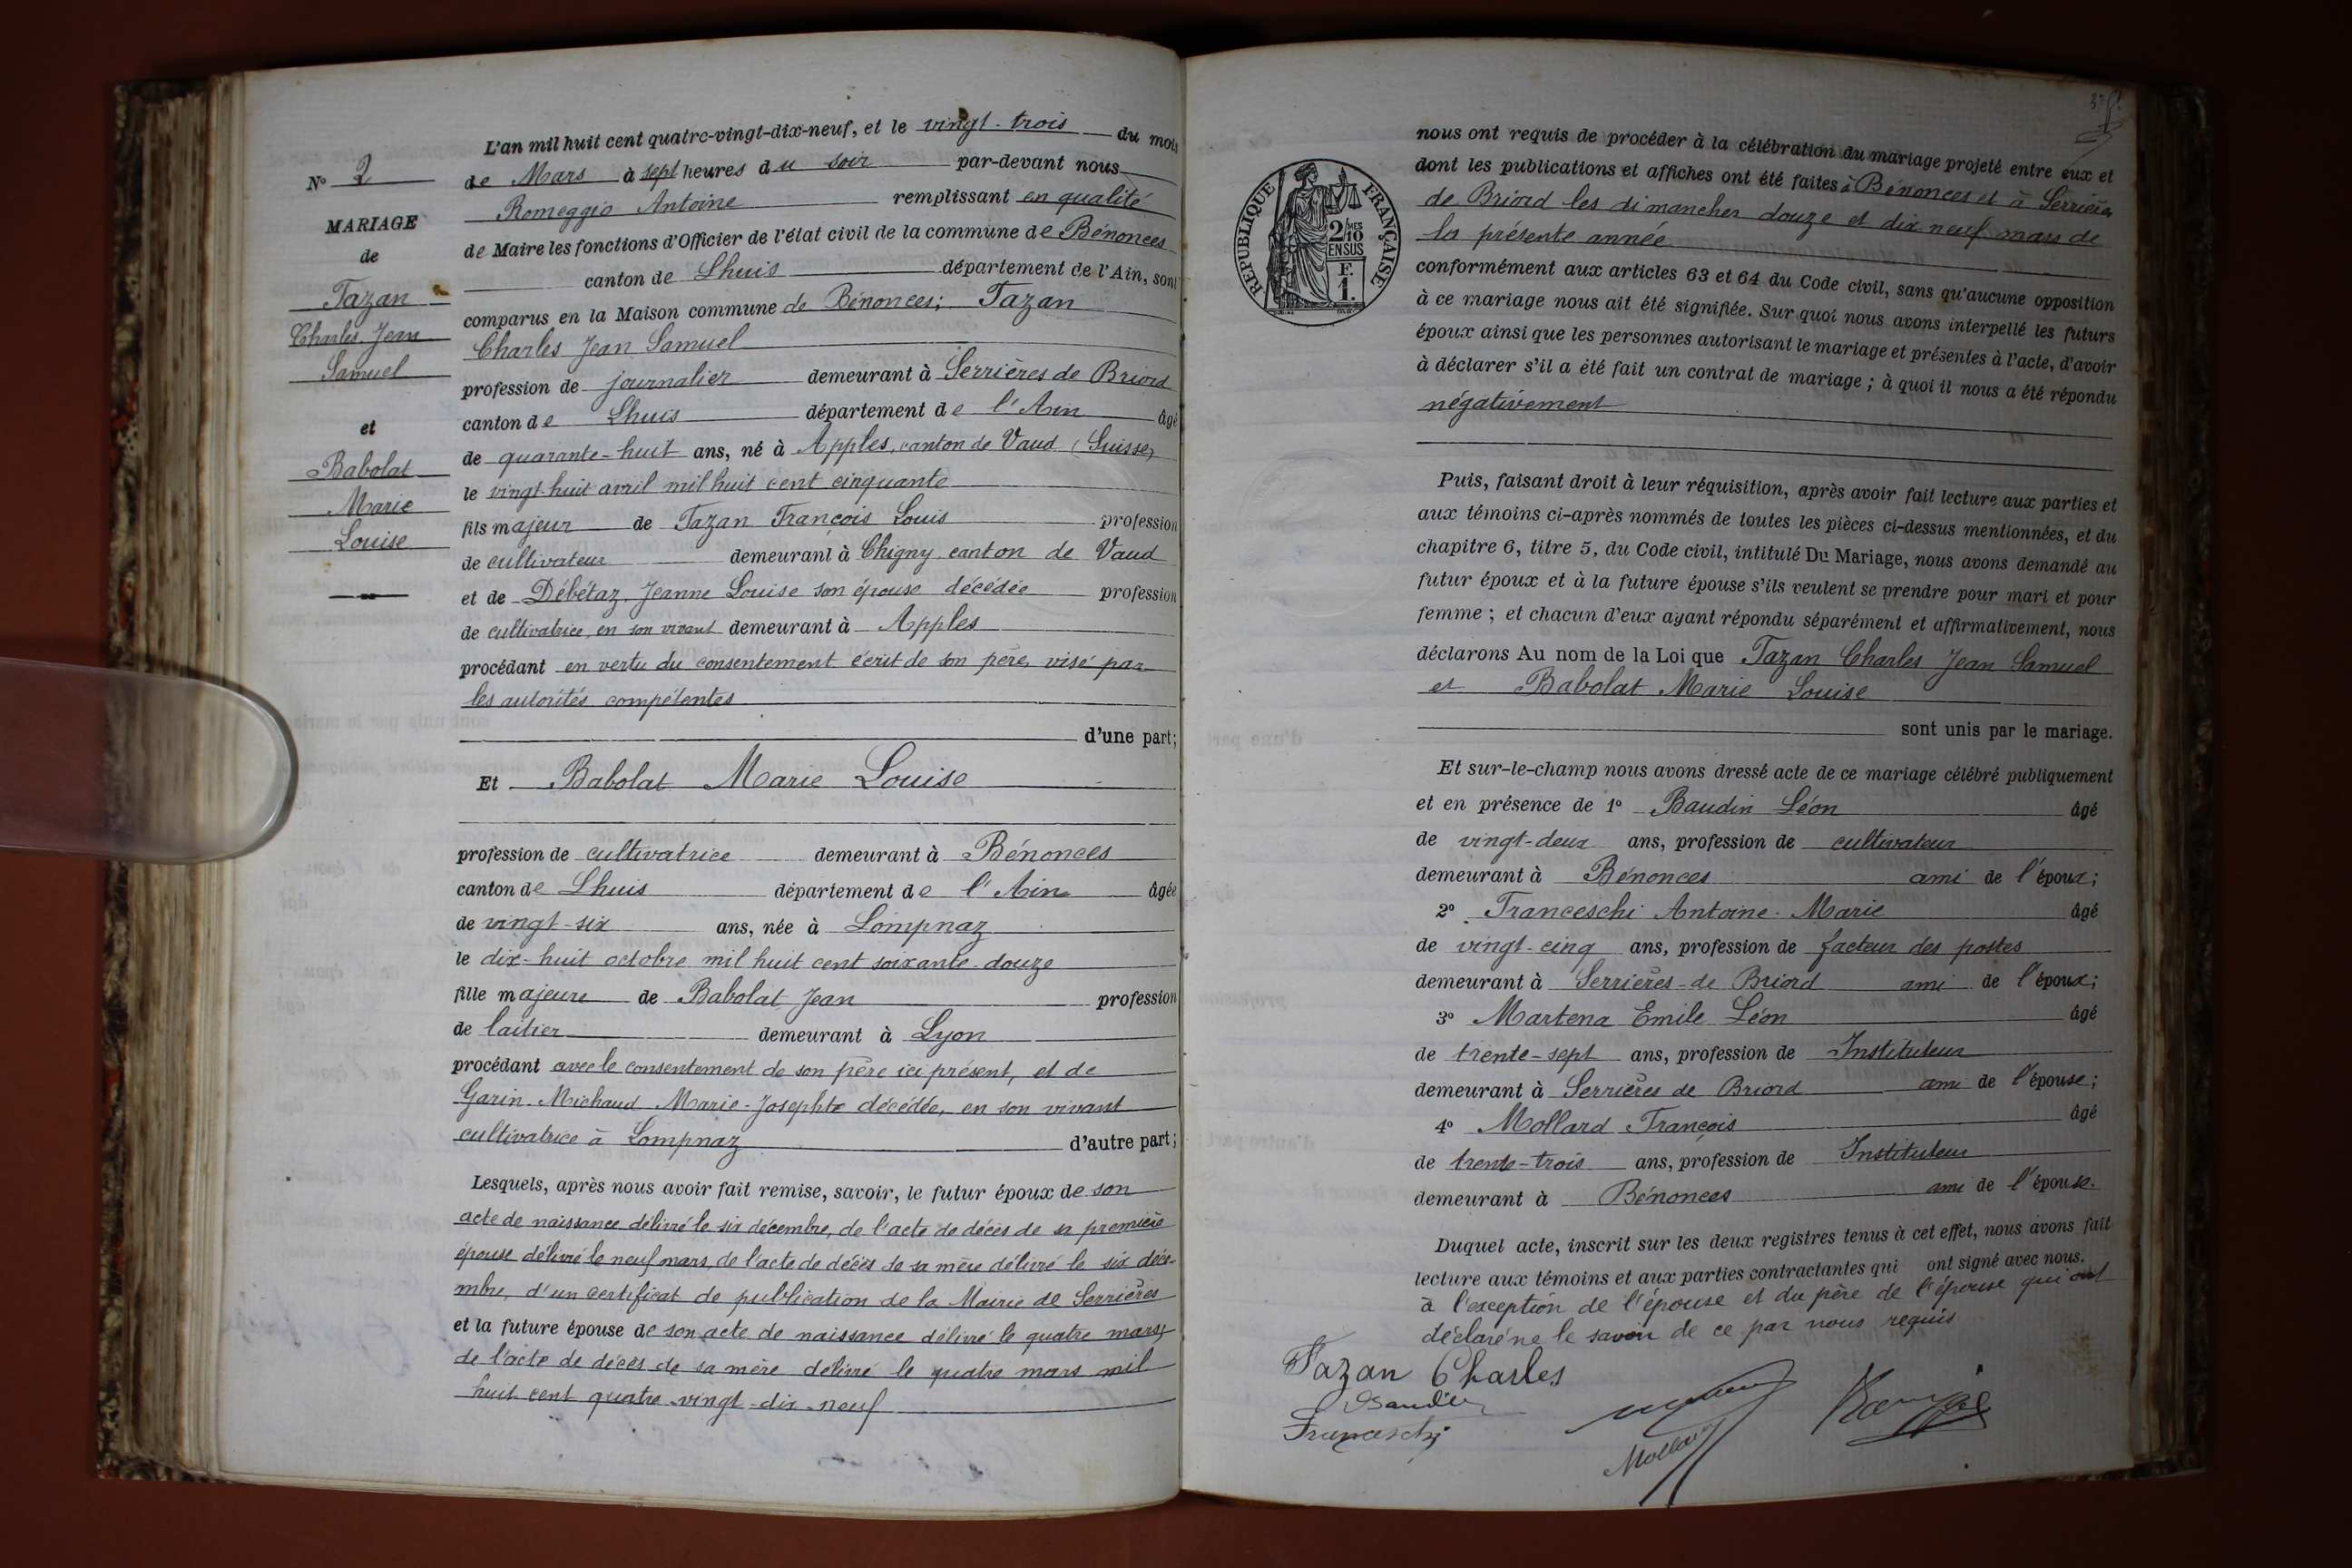 N° 2
MARIAGE
de
Tazan
Charles Jean
Samuel
et
Babolat
Marie
Louise
L'an mil huit cent quatre-vingt-dix-neuf, et le vingt-trois du mois
de Mars à sept heures du soir par-devant nous
Romeggio Antoine remplissant en qualité
de Maire les fonctions d'Officier de l'état civil de la commune de Bénonces
canton de Lhuis département de l'Ain, sont
comparus en la Maison commune de Bénonces; Tazan
Charles Jean Samuel
profession de journalier demeurant à Serrières de Briord
canton de Lhuis département de l'Ain âgé
de quarante-huit ans, né à Apples, canton de Vaud (Suisse)
le vingt-huit avril mil huit cent cinquante
fils majeur de Tazan François Louis profession
de cultivateur demeurant à Chigny canton de Vaud
et de Débétaz, Jeanne Louise son épouse décédée profession
de cultivatrice en son vivant demeurant à Apples
procédant en vertu du consentement écrit de son père, visé par
les autorités compétentes
d'une part;
Et Babolat Marie Louise
profession de cultivatrice demeurant à Bénonces
canton de Lhuis département de l'Ain âgée
de vingt-six ans, née à Lompnaz
le dix-huit octobre mil huit cent soixante-douze
fille majeure de Babolat Jean profession
de laitier demeurant à Lyon
procédant avec le consentement de son père ici présent, et de
Garin-Michaud Marie-Josephte décédée, en son vivant
cultivatrice à Lompnaz d'autre part;
Lesquels, après nous avoir fait remise, savoir, le futur époux de son
acte de naissance délivré le six décembre, de l'acte de décès de sa première
épouse délivré le neuf mars, de l'acte de décès de sa mère délivré le six déce-
mbre, d'un certificat de publication de la Mairie de Serrières
et la future épouse de son acte de naissance délivré le quatre mars,
de l'acte de décès de sa mère délivré le quatre mars mil
huit cent quatre-vingt-dix-neuf
REPUBLIQUE FRANÇAISE
2/10 MES
EN SUS
F.
1.
nous ont requis de procéder à la célébration du mariage projeté entre eux et
dont les publications et affiches ont été faites à Bénonces et à Serrières
de Briord les dimanches douze et dix neuf mars de
la présente année
conformément aux articles 63 et 64 du Code civil, sans qu'aucune opposition
à ce mariage nous ait été signifiée. Sur quoi nous avons interpellé les futurs
époux ainsi que les personnes autorisant le mariage et présentes à l'acte, d'avoir
à déclarer s'il a été fait un contrat de mariage; à quoi il nous a été répondu
négativement
Puis, faisant droit à leur réquisition, après avoir fait lecture aux parties et
aux témoins ci-après nommés de toutes les pièces ci-dessus mentionnées, et du
chapitre 6, titre 5, du Code civil, intitulé Du Mariage, nous avons demandé au
futur époux et à la future épouse s'ils veulent se prendre pour mari et pour
femme; et chacun d'eux ayant répondu séparément et affirmativement, nous
déclarons Au nom de la Loi que Tazan Charles Jean Samuel
et Babolat Marie Louise
sont unis par le mariage.
Et sur-le-champ nous avons dressé acte de ce mariage célébré publiquement
et en présence de 1° Baudin Léon âgé
de vingt-deux ans, profession de cultivateur
demeurant à Bénonces ami de l'époux;
2° Franceschi Antoine-Marie âgé
de vingt-cinq ans, profession de facteur des postes
demeurant à Serrières-de Briord ami de l'époux;
3° Martena Emile Léon âgé
de trente-sept ans, profession de Instituteur
demeurant à Serrières de Briord ami de l'épouse;
4° Mollard François âgé
de trente-trois ans, profession de Instituteur
demeurant à Bénonces ami de l'épouse.
Duquel acte, inscrit sur les deux registres tenus à cet effet, nous avons fait
lecture aux témoins et aux parties contractantes qui ont signé avec nous.
à l'exception de l'épouse et du père de l'épouse qui ont
déclaré ne le savoir de ce par nous requis
Tazan Charles
Baudin
Franceschi
Mollard